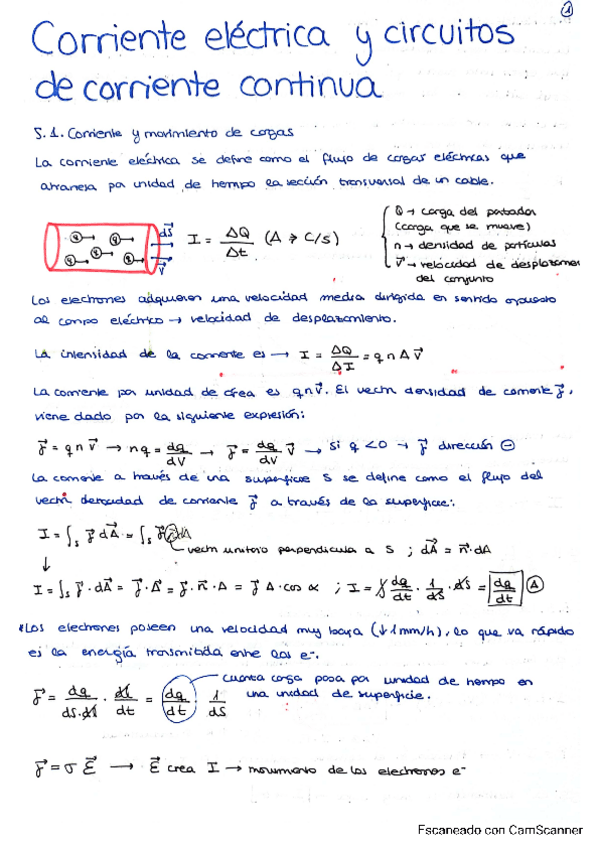 1
Corriente eléctrica y circuitos
de corriente continua
5.1. Corriente y movimiento de cargas
La corriente eléctrica se define como el flujo de cargas eléctricas que
atraviesa por unidad de tiempo la sección transversal de un cable.
q q q q q dS⃗ v⃗
I = ΔQ/Δt (A → C/s)
Q → carga del portador
(carga que se mueve)
n → densidad de partículas
v⃗ → velocidad de desplazamiento
del conjunto
Los electrones adquieren una velocidad media dirigida en sentido opuesto
al campo eléctrico → velocidad de desplazamiento.
La intensidad de la corriente es → I = ΔQ/ΔI = q n A v⃗
La corriente por unidad de área es q n v⃗. El vector densidad de corriente J⃗,
viene dado por la siguiente expresión:
J⃗ = q n v⃗ → nq = dq/dV → J⃗ = dq/dV v⃗ → Si q < 0 → J⃗ dirección ⊖
La corriente a través de una superficie S se define como el flujo del
vector densidad de corriente J⃗ a través de la superficie:
I = ∫s J⃗ dA⃗ = ∫s J⃗ n⃗ dA
vector unitario perpendicular a S ; dA⃗ = n⃗·dA
↓
I = ∫s J⃗ · dA⃗ = J⃗ · A⃗ = J⃗ · n⃗ · A = J⃗ A · cos α ; I = ∫ dq/dt · 1/dS · dS = dq/dt (A)
*Los electrones poseen una velocidad muy baja (↓1mm/h), lo que va rápido
es la energía transmitida entre los e⁻.
cuanta carga pasa por unidad de tiempo en
una unidad de superficie.
J⃗ = dq/dS·dl · dl/dt = dq/dt · 1/dS
J⃗ = σ E⃗ → E⃗ crea I → movimiento de los electrones e⁻
Escaneado con CamScanner